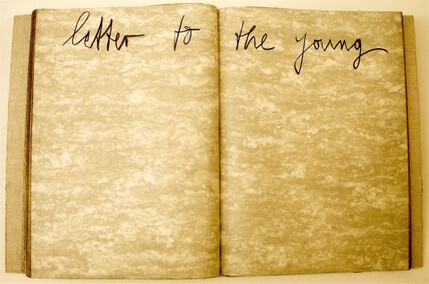 letter to the young